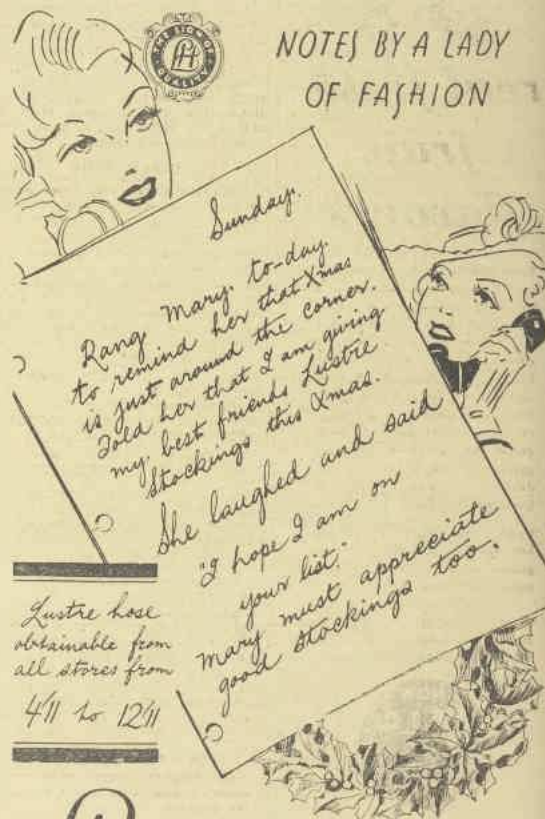 THE SIGN OF
QUALITY
NOTES BY A LADY
OF FASHION
Sunday.
Rang Mary to-day
to remind her that Xmas
is just around the corner.
Told her that I am giving
my best friends Lustre
Stockings this Xmas.
She laughed and said
"I hope I am on
your list."
Mary must appreciate
good stockings too.
Lustre hose
obtainable from
all stores from
4/11 to 12/11